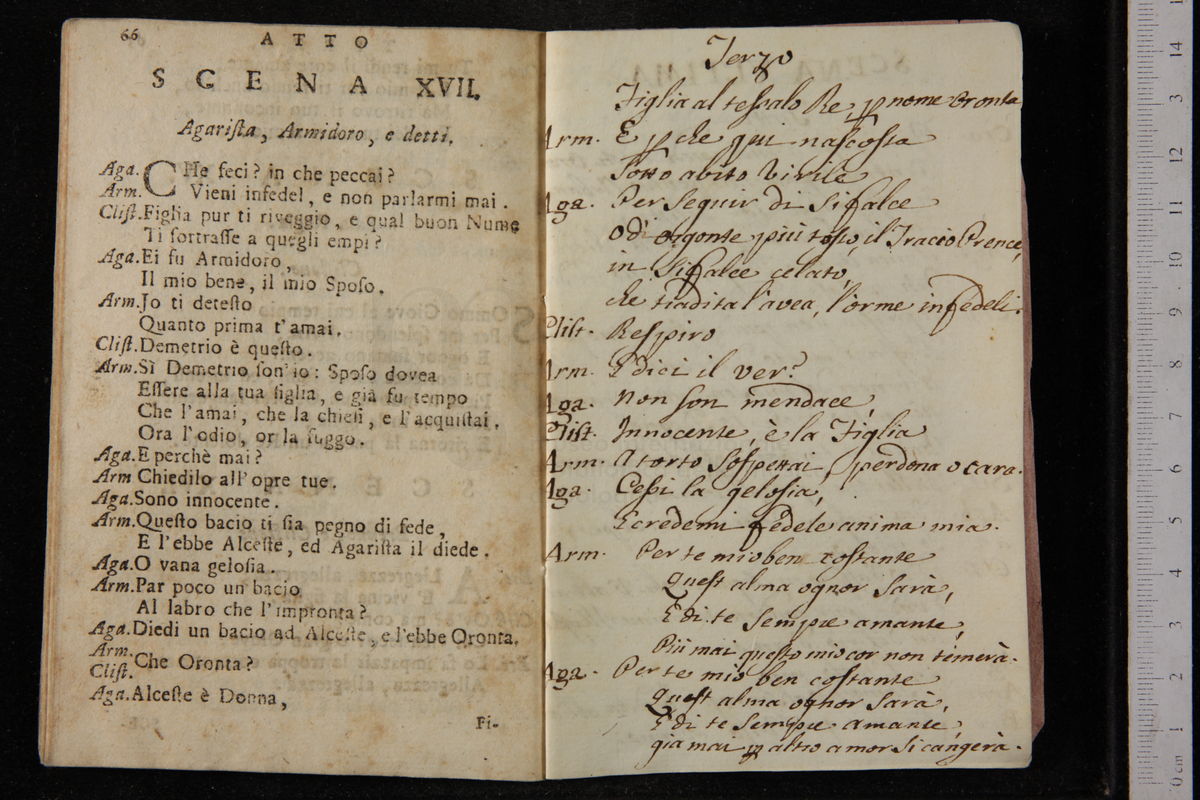 66
ATTO
SCENA XVII.
Agariſta, Armidoro, e detti.
Aga. CHe feci? in che peccai?
Arm. Vieni infedel, e non parlarmi mai.
Cliſt. Figlia pur ti riveggio, e qual buon Nume
Ti ſortraſſe a quegli empi?
Aga. Ei fu Armidoro,
Il mio bene, il mio Spoſo.
Arm. Jo ti deteſto
Quanto prima t'amai.
Cliſt. Demetrio è queſto.
Arm. Sì Demetrio ſon'io: Spoſo dovea
Eſſere alla tua figlia, e già fu tempo
Che l'amai, che la chieſi, e l'acquiſtai.
Ora l'odio, or la fuggo.
Aga. E perchè mai?
Arm Chiedilo all'opre tue.
Aga. Sono innocente.
Arm. Queſto bacio ti ſia pegno di fede,
E l'ebbe Alceſte, ed Agariſta il diede.
Aga. O vana geloſia.
Arm. Par poco un bacio
Al labro che l'impronta?
Aga. Diedi un bacio ad Alceſte, e l'ebbe Oronta.
Arm.
Cliſt. Che Oronta?
Aga. Alceſte è Donna,
Fi-
Terzo
Figlia al teſsalo Re, p nome Oronta
Arm. E p che qui naſcoſta
Sotto abito Virile
Aga. Per Seguir di Sifalce
O di Orgonte più toſto, il Tracio Prence,
in Sifalce celato,
che tradita l'avea, l'orme infedeli.
Cliſt. Reſpiro
Arm. E dici il ver?
Aga. Non ſon mendace,
Cliſt. Innocente, è la Figlia
Arm. A torto Soſpettai, perdona o cara.
Aga. Ceſsi la geloſia,
E credemi fedele anima mia.
Arm. Per te mio ben coſtante
Queſt alma ognor Sarà,
E di te Sempre amante,
Più mai queſto mio cor non temerà.
Aga. Per te mio ben coſtante
Queſt alma ognor Sarà,
E di te Sempre amante,
gia mai p altro amor Si cangerà.
0 cm 1 2 3 4 5 6 7 8 9 10 11 12 13 14